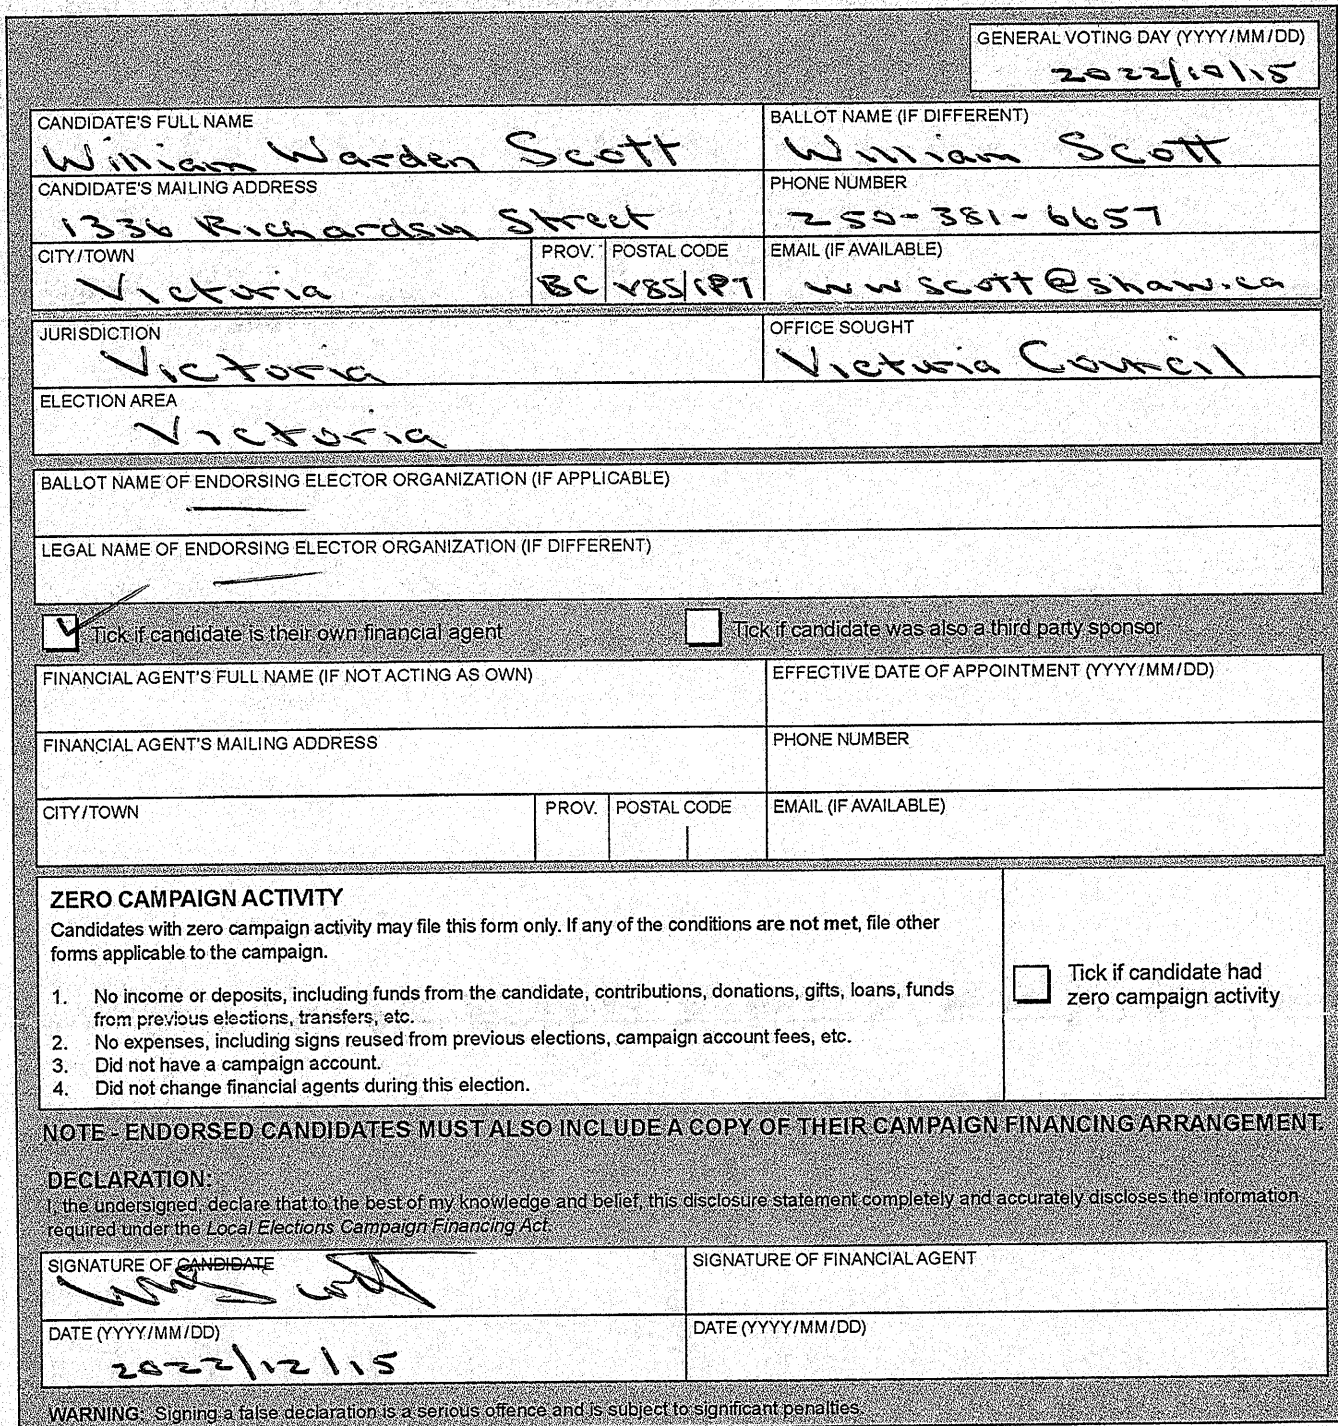 GENERAL VOTING DAY (YYYY/MM/DD)
2022/10/15
CANDIDATE'S FULL NAME
William Warden Scott
BALLOT NAME (IF DIFFERENT)
William Scott
CANDIDATE'S MAILING ADDRESS
1336 Richardson Street
PHONE NUMBER
250-381-6657
CITY/TOWN
Victoria
PROV.
BC
POSTAL CODE
V8S 1P7
EMAIL (IF AVAILABLE)
wwscott@shaw.ca
JURISDICTION
Victoria
OFFICE SOUGHT
Victoria Council
ELECTION AREA
Victoria
BALLOT NAME OF ENDORSING ELECTOR ORGANIZATION (IF APPLICABLE)
LEGAL NAME OF ENDORSING ELECTOR ORGANIZATION (IF DIFFERENT)
Tick if candidate is their own financial agent
Tick if candidate was also a third party sponsor
FINANCIAL AGENT'S FULL NAME (IF NOT ACTING AS OWN)
EFFECTIVE DATE OF APPOINTMENT (YYYY/MM/DD)
FINANCIAL AGENT'S MAILING ADDRESS
PHONE NUMBER
CITY/TOWN
PROV.
POSTAL CODE
EMAIL (IF AVAILABLE)
ZERO CAMPAIGN ACTIVITY
Candidates with zero campaign activity may file this form only. If any of the conditions are not met, file other
forms applicable to the campaign.
1. No income or deposits, including funds from the candidate, contributions, donations, gifts, loans, funds
from previous elections, transfers, etc.
2. No expenses, including signs reused from previous elections, campaign account fees, etc.
3. Did not have a campaign account.
4. Did not change financial agents during this election.
Tick if candidate had
zero campaign activity
NOTE - ENDORSED CANDIDATES MUST ALSO INCLUDE A COPY OF THEIR CAMPAIGN FINANCING ARRANGEMENT.
DECLARATION:
I, the undersigned, declare that to the best of my knowledge and belief, this disclosure statement completely and accurately discloses the information
required under the Local Elections Campaign Financing Act.
SIGNATURE OF CANDIDATE
SIGNATURE OF FINANCIAL AGENT
DATE (YYYY/MM/DD)
2022/12/15
DATE (YYYY/MM/DD)
WARNING: Signing a false declaration is a serious offence and is subject to significant penalties.